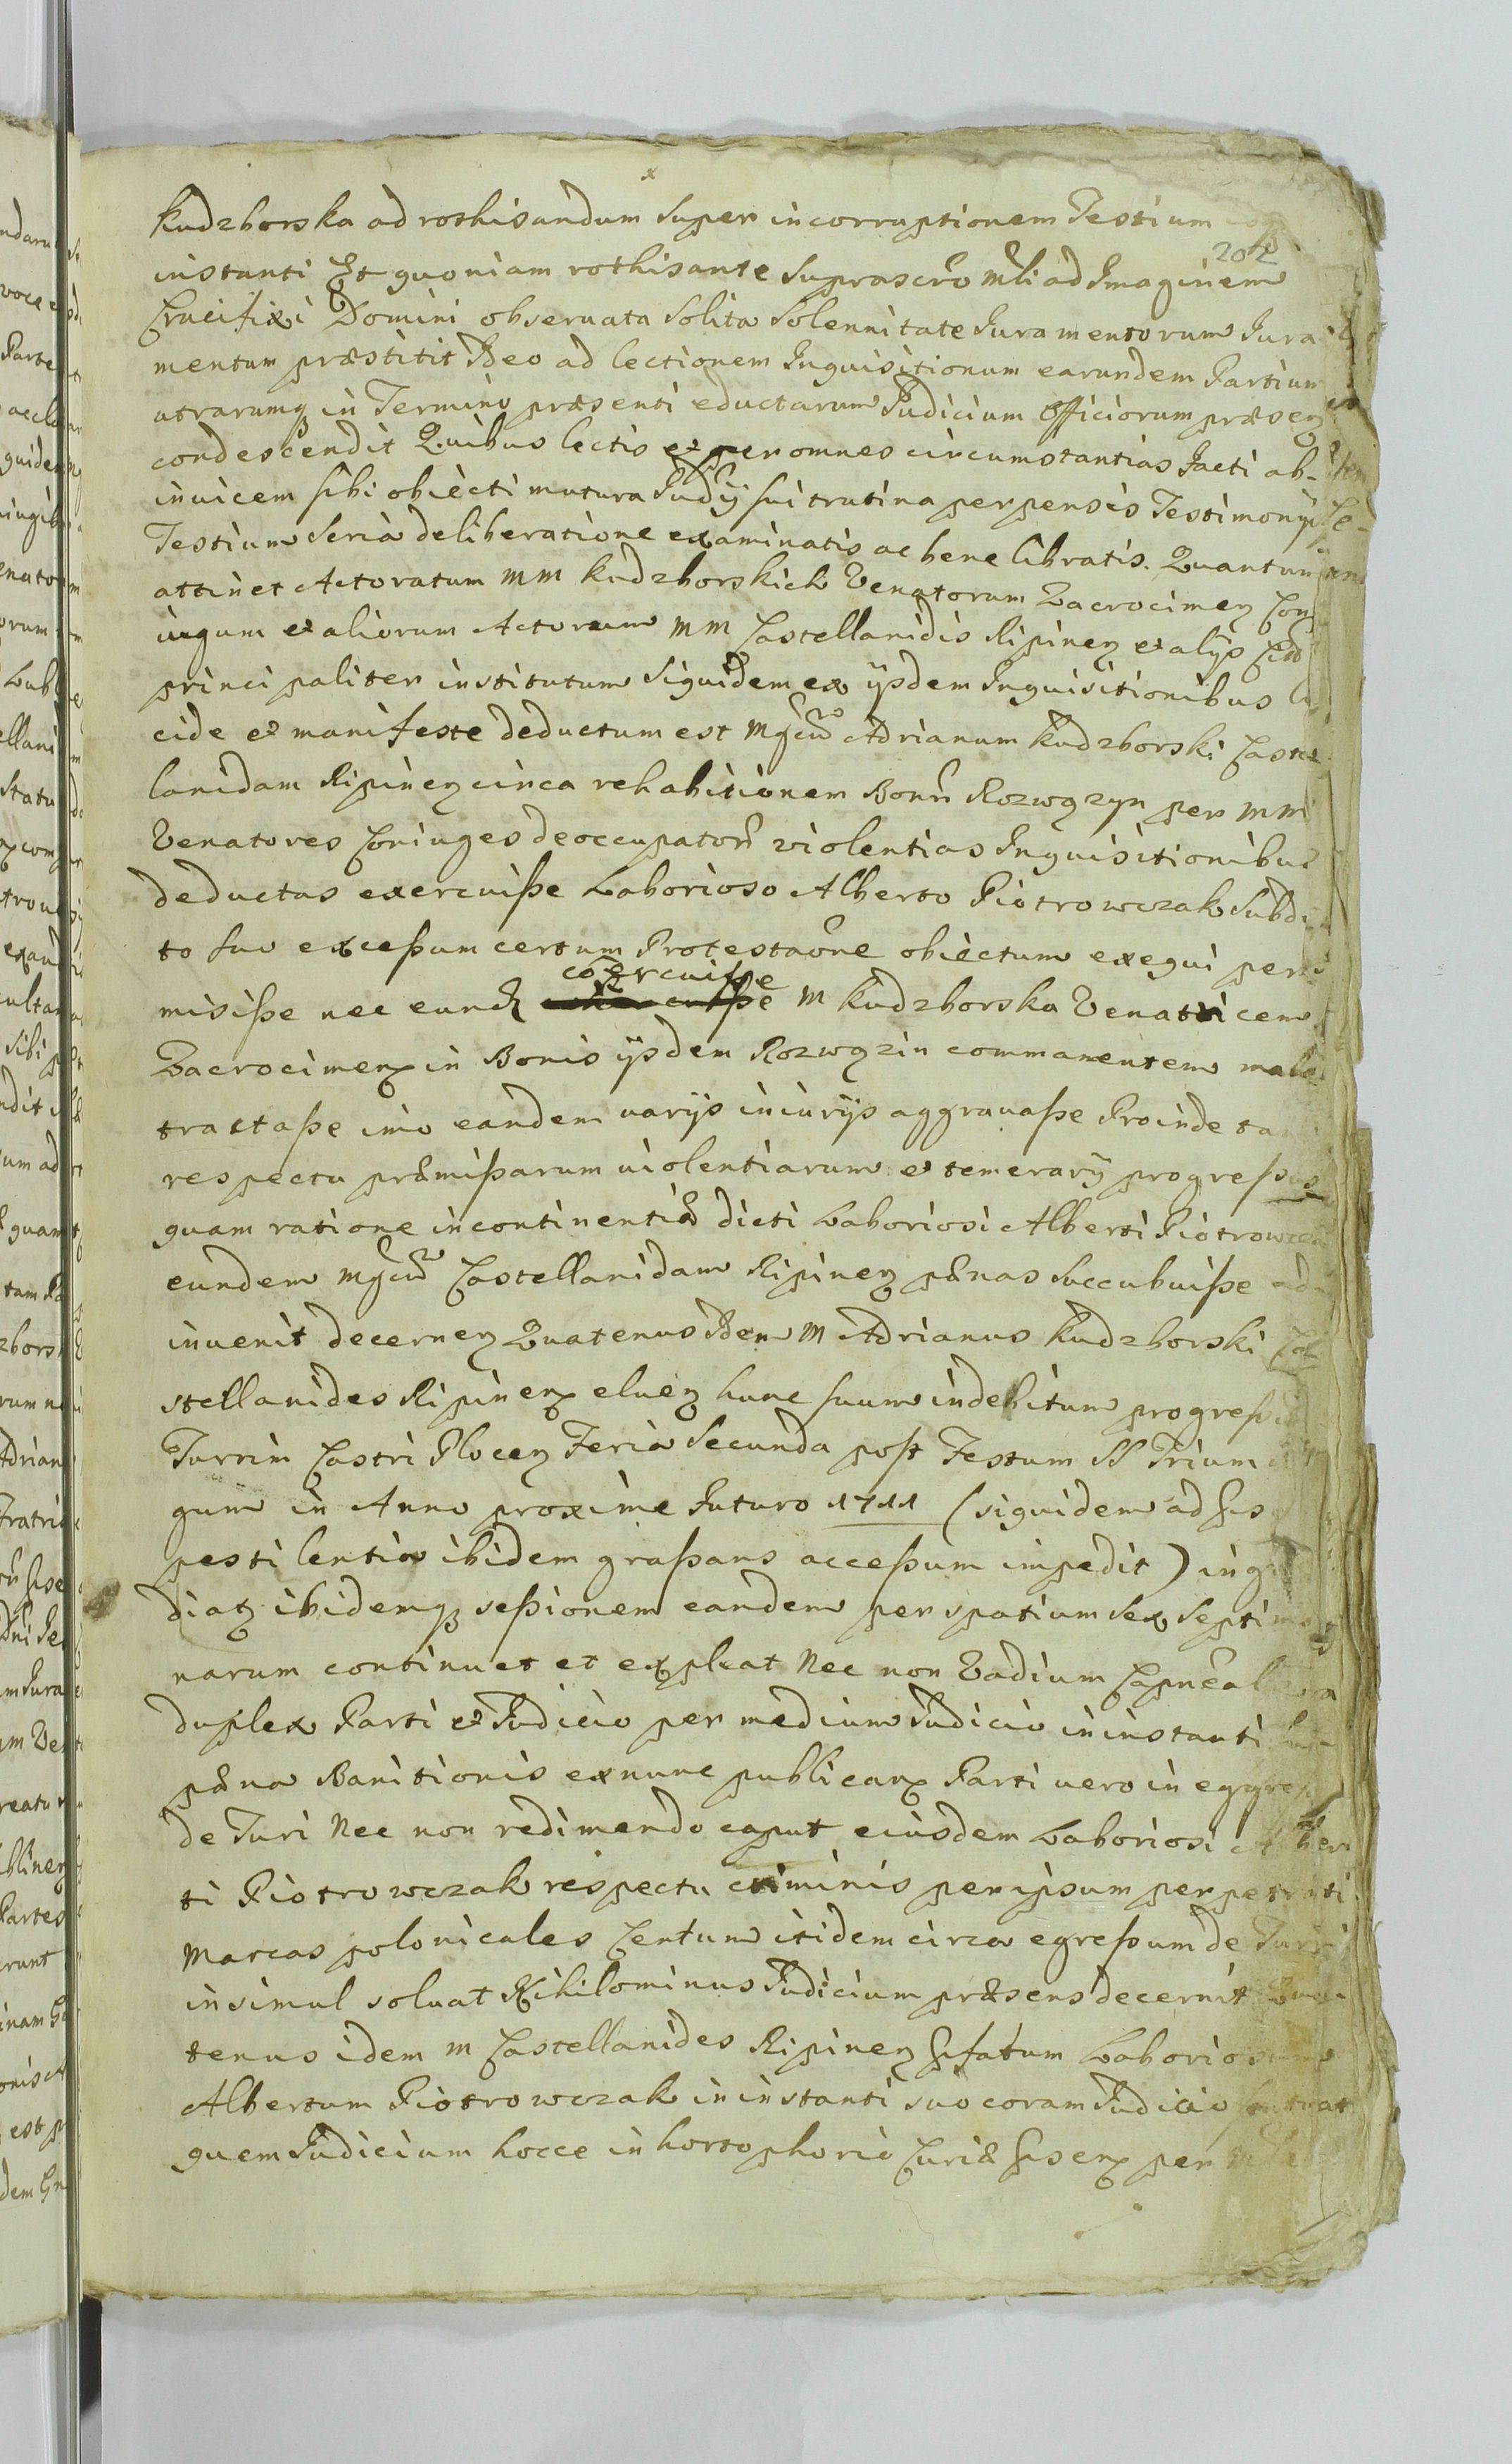 Kudzborska ad rothisandum super incorruptionem Testium
202
instanti Et quoniam rothisante suprascro Mli ad Imaginem
Crucifixi Domini obseruata solita solennitate Juramentorum Jura
mentum præstitit Ideo ad lectionem Inquisitionum earundem Partium
utrarumq in Termino præsenti eductarum Judicium Officiorum præsen
condescendit Quibus lectis et per omnes circumstantias facti ab
inuicem sibi obiecti matura Judÿ sui trutina perpensis Testimonÿs
Testium seria deliberatione examinatis ac bene libratis. Quantum
attinet Actoratum MM Kudzborskich Venatorum Zacrocimen Con
iugum et aliorum Actorum MM Castellanidis Ripinen et alÿs
principaliter institutum Siquidem ex ÿsdem Inquisitionibus lu
cide et manifeste deductum est Mgcum Adrianum Kudzborski Castel
lanidam Ripinen circa rehabitionem Bonr Rozwozyn per MM
Venatores Coniuges deoccupator violentias Inquisitionibus
deductas exercuisse Laborioso Alberto Piotrowczak Subdi
to suo excessum certum Protestaone obiectum exequi per
misisse nec eund coercuisse M Kudzborska Venatricem
Zacrocimen in Bonis ÿsdem Rozwozin commanentem male
tractasse imo eandem varÿs iniurÿs aggrauasse Proinde tam
respectu præmissarum uiolentiarum et temerarÿ progressus
quam ratione incontinentiæ dicti Laboriosi Alberti Piotrowcza
eundem Mgcum Castellanidam Ripinen pænas succubuisse ad
inuenit decernen Quatenus Idem M Adrianus Kudzborski Ca
stellanides Ripinen eluen hunc suum indebitum progressum
Turrim Castri Plocen Feria Secunda post Festum SS Trium
gum in Anno proxime futuro 1711 (siquidem ad hs
pestilentia ibidem grassans accessum impedit) ingre
diat ibidemq sessionem eandem per spatium sex septima
narum continuet et expleat Nec non Vadium
duplex Parti et Judicio per medium Judicio in instanti
pæna Banitionis exnunc publican Parti uero in egressu
de Turi Nec non redimendo caput eiusdem Laboriosi Alber
ti Piotrowczak respectu criminis per ipsum perpetrati
Marcas polonicales Centum itidem circa egressum de Turri
insimul soluat Nihilominus Judicium præsens decernit Qua
tenus idem M Castellanides Ripinen Præfatum Laboriosum
Albertum Piotrowczak in instanti suo coram Judicio statuat
quem Judicium hocce in hortophorio Curiæ per